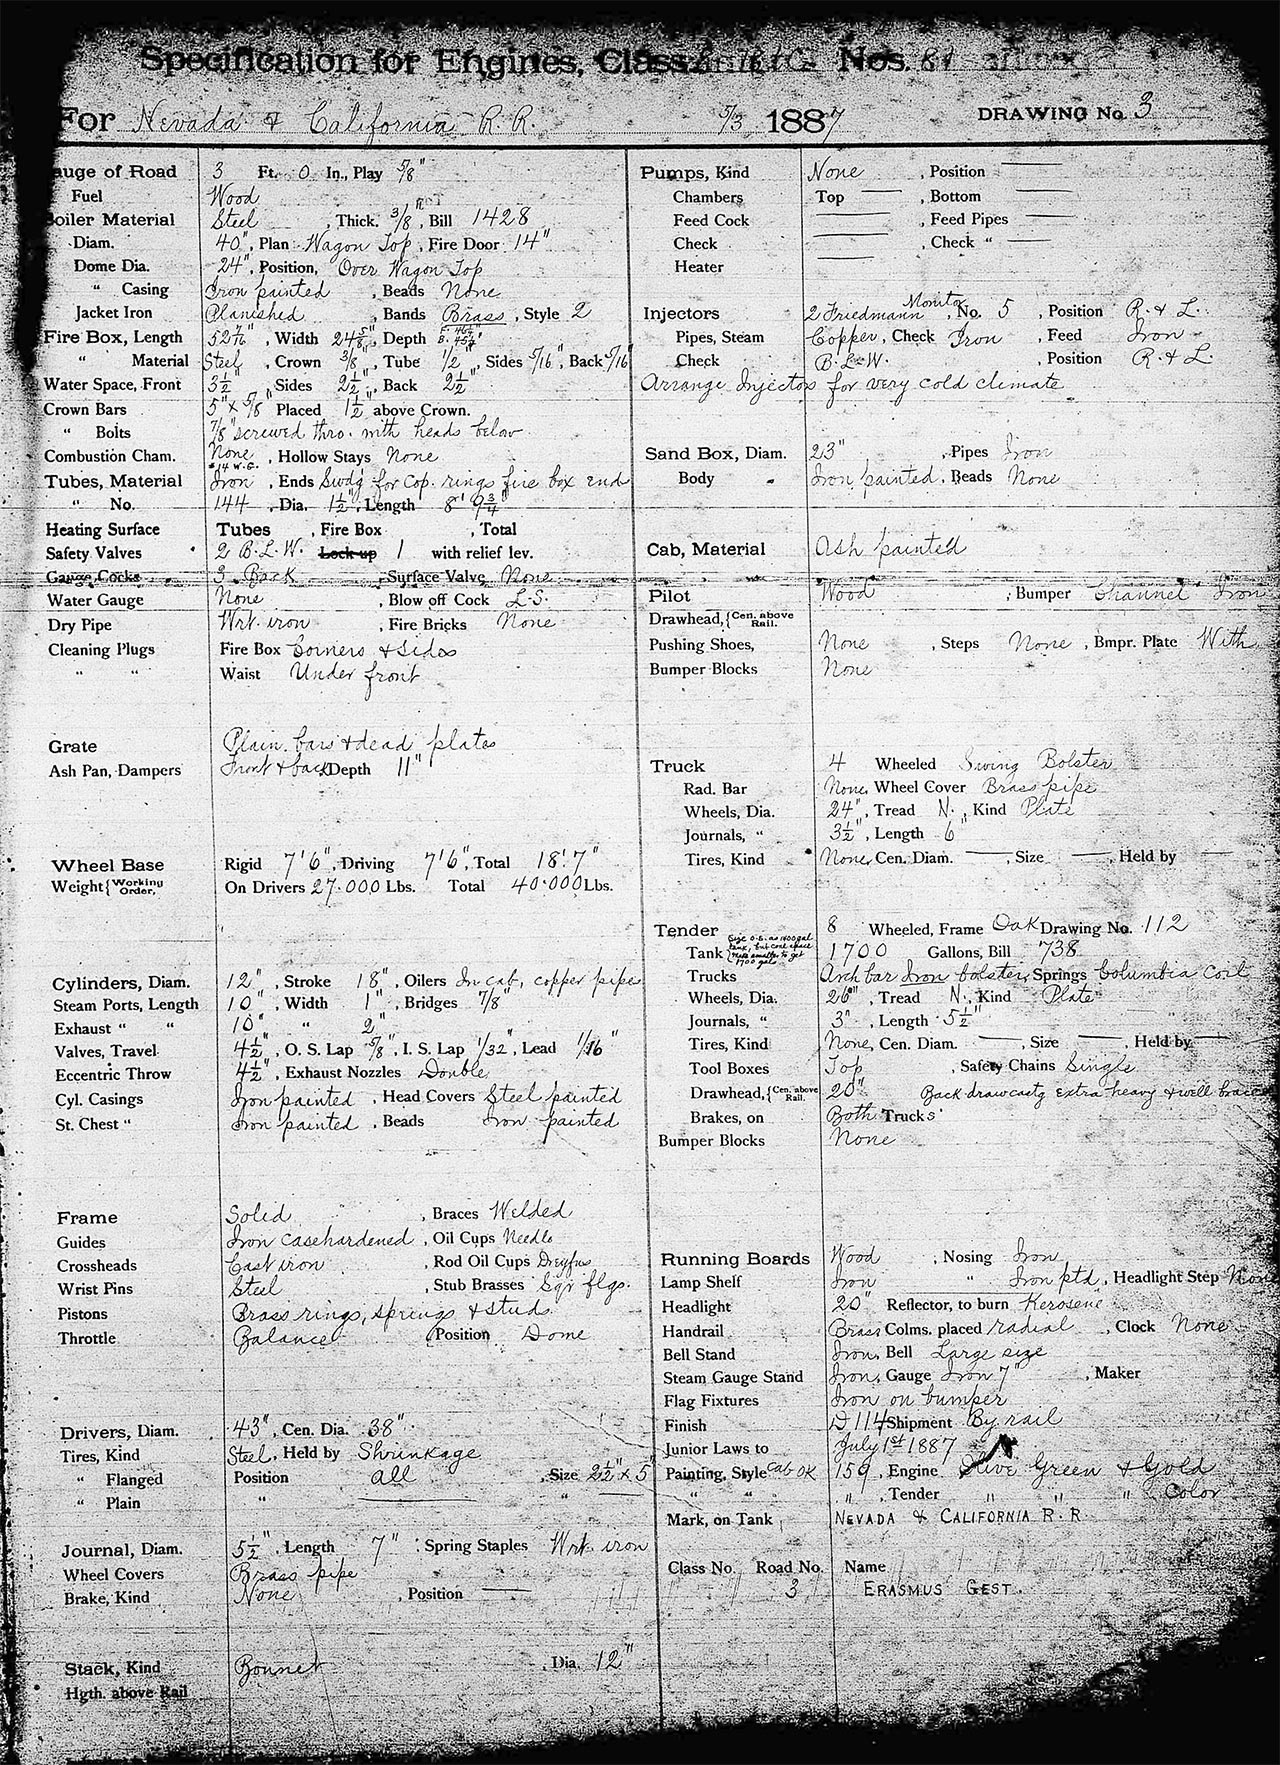 Specification for Engines, Class Nos.
For Nevada & California R. R. 5/3 1887 DRAWING No. 3
auge of Road 3 Ft. 0 In., Play 5/8"
Fuel Wood
Boiler Material Steel , Thick. 3/8", Bill 1428
Diam. 40", Plan Wagon Top, Fire Door 14"
Dome Dia. 24", Position, Over Wagon Top
" Casing Iron painted , Beads None
Jacket Iron Planished , Bands Brass , Style 2
Fire Box, Length , Width , Depth
" Material Steel , Crown 3/8", Tube 1/2", Sides 5/16", Back 5/16"
Water Space, Front 3 1/2", Sides 2 1/2", Back 2 1/2"
Crown Bars 5" x 5/8" Placed 1 1/2" above Crown.
" Bolts 7/8" screwed thro. with heads below
Combustion Cham. None , Hollow Stays None
Tubes, Material #14 W.G. Iron , Ends Swdg for Cop. rings fire box end
" No. 144 , Dia. 1 1/2", Length 8' 9 3/4"
Heating Surface Tubes , Fire Box , Total
Safety Valves 2 B.L.W. Lock up 1 with relief lev.
Gauge Cocks 3 Back , Surface Valve None
Water Gauge None , Blow off Cock L.S.
Dry Pipe Wrt. iron , Fire Bricks None
Cleaning Plugs Fire Box Corners & Sides
" " Waist Under front
Grate Plain bars & dead plates
Ash Pan, Dampers Front & back, Depth 11"
Wheel Base Rigid 7'6", Driving 7'6", Total 18'7"
Weight { Working Order, On Drivers 27.000 Lbs. Total 40.000 Lbs.
Cylinders, Diam. 12", Stroke 18", Oilers In cab, copper pipes
Steam Ports, Length 10", Width 1", Bridges 7/8"
Exhaust " " 10" " 2"
Valves, Travel 4 1/2", O. S. Lap 5/8", I. S. Lap 1/32", Lead 1/16"
Eccentric Throw 4 1/2", Exhaust Nozzles Double
Cyl. Casings Iron painted , Head Covers Steel painted
St. Chest " Iron painted , Beads Iron painted
Frame Solid , Braces Welded
Guides Iron casehardened , Oil Cups Needle
Crossheads Cast iron , Rod Oil Cups Dreyfus
Wrist Pins Steel , Stub Brasses Sqr flgs.
Pistons Brass rings, springs & studs
Throttle Balance Position Dome
Drivers, Diam. 43", Cen. Dia. 38"
Tires, Kind Steel, Held by Shrinkage
" Flanged Position all , Size 2 1/2" x 5"
" Plain " "
Journal, Diam. 5 1/2", Length 7" Spring Staples Wrt iron
Wheel Covers Brass pipe
Brake, Kind None , Position
Stack, Kind Bonnet , Dia. 12"
Hgth. above Rail
Pumps, Kind None , Position
Chambers Top , Bottom
Feed Cock , Feed Pipes
Check , Check "
Heater
Injectors 2 Friedmann Monitor , No. 5 , Position R. & L.
Pipes, Steam Copper, Check Iron , Feed Iron
Check B.L.W. , Position R. & L.
Arrange Injectors for very cold climate
Sand Box, Diam. 23" , Pipes Iron
Body Iron painted, Beads None
Cab, Material Ash painted
Pilot Wood , Bumper Channel Iron
Drawhead, { Cen. above Rail.
Pushing Shoes, None , Steps None , Bmpr. Plate With
Bumper Blocks None
Truck 4 Wheeled Swing Bolster
Rad. Bar None, Wheel Cover Brass pipe
Wheels, Dia. 24", Tread N. , Kind Plate
Journals, " 3 1/2", Length 6"
Tires, Kind None, Cen. Diam. , Size , Held by
Tender 8 Wheeled, Frame Oak Drawing No. 112
Tank 1700 Gallons, Bill 738
Trucks Arch bar Iron bolster, Springs Columbia Coil
Wheels, Dia. 26" , Tread N., Kind Plate
Journals, " 3" , Length 5 1/2"
Tires, Kind None, Cen. Diam. , Size , Held by
Tool Boxes Top , Safety Chains Single
Drawhead, { Cen. above Rail. 20" Back drawcastg extra heavy & well braced
Brakes, on Both Trucks
Bumper Blocks None
Running Boards Wood , Nosing Iron
Lamp Shelf Iron " Iron ptd , Headlight Step None
Headlight 20" Reflector, to burn Kerosene
Handrail Brass Colms. placed radial , Clock None
Bell Stand Iron, Bell Large size
Steam Gauge Stand Iron, Gauge Iron 7" , Maker
Flag Fixtures Iron on bumper
Finish D 114 Shipment By rail
Junior Laws to July 1st 1887
Painting, Style Cab OK 159 , Engine Olive Green & Gold
" " " , Tender " " " Color
Mark, on Tank NEVADA & CALIFORNIA R.R
Class No. Road No. Name
3 ERASMUS GEST.